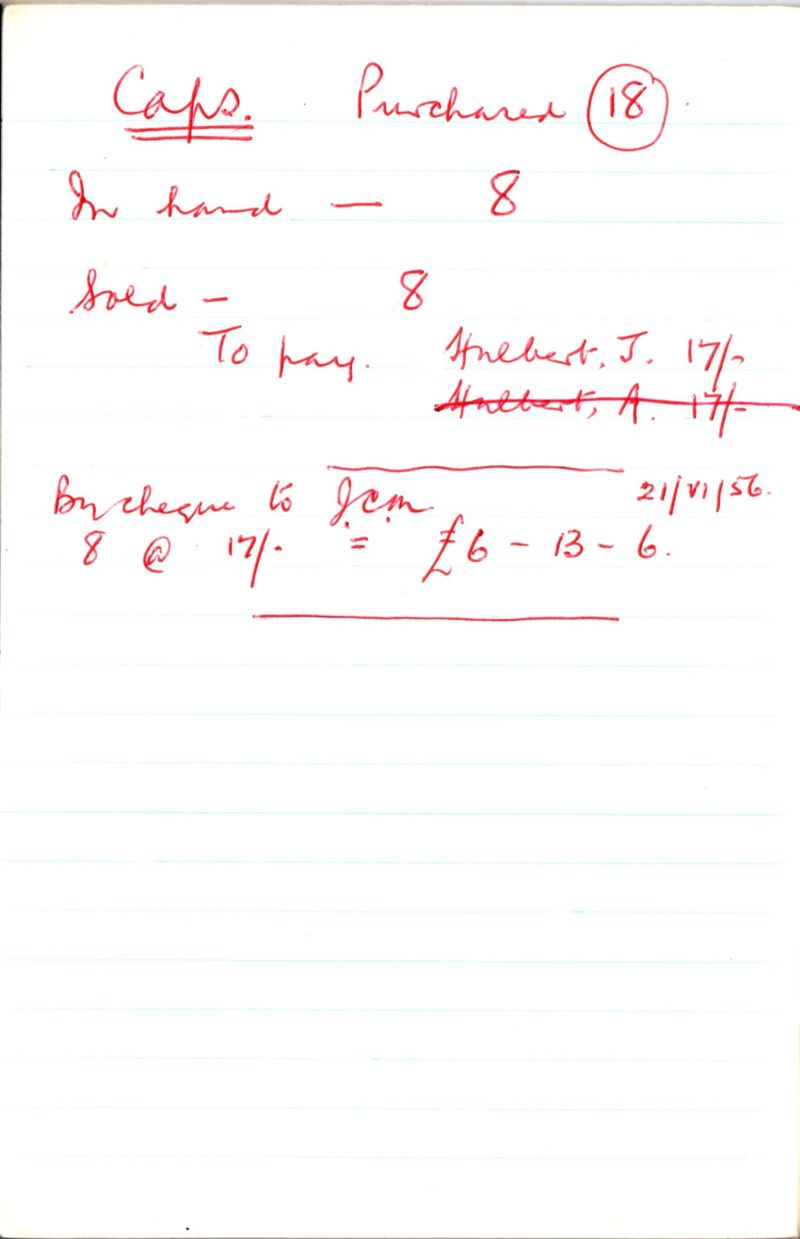 Caps. Purchased 18
In hand — 8
Sold — 8
To pay. Hulbert, J. 17/-
Hulbert, A. 17/-
By cheque to Jcm. 21/VI/56.
8 @ 17/- = £6 - 13 - 6.